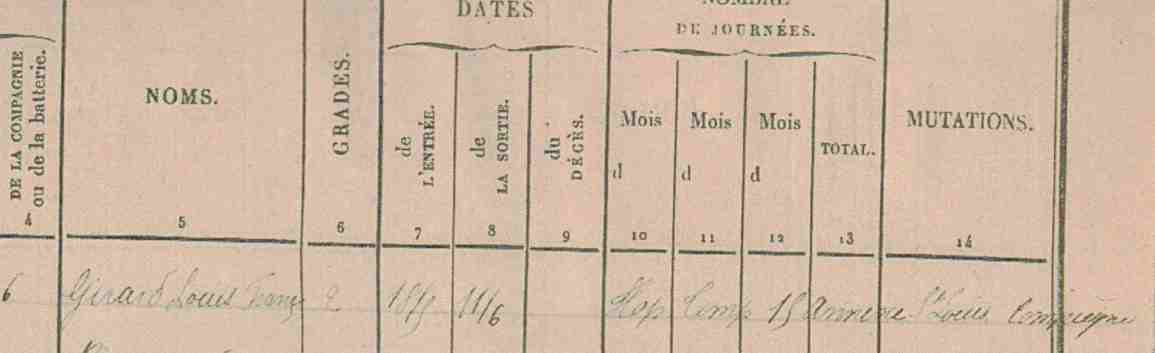 DATES
NOMBRE
DE JOURNÉES.
DE LA COMPAGNIE
ou de la batterie.
NOMS.
GRADES.
de
L'ENTRÉE.
de
LA SORTIE.
du
DÉCÈS.
Mois
d
Mois
d
Mois
d
TOTAL.
MUTATIONS.
4 5 6 7 8 9 10 11 12 13 14
6 Girard Louis 2 18/5 11/6 Hop Comp 15 Annexe St Louis Compiègne